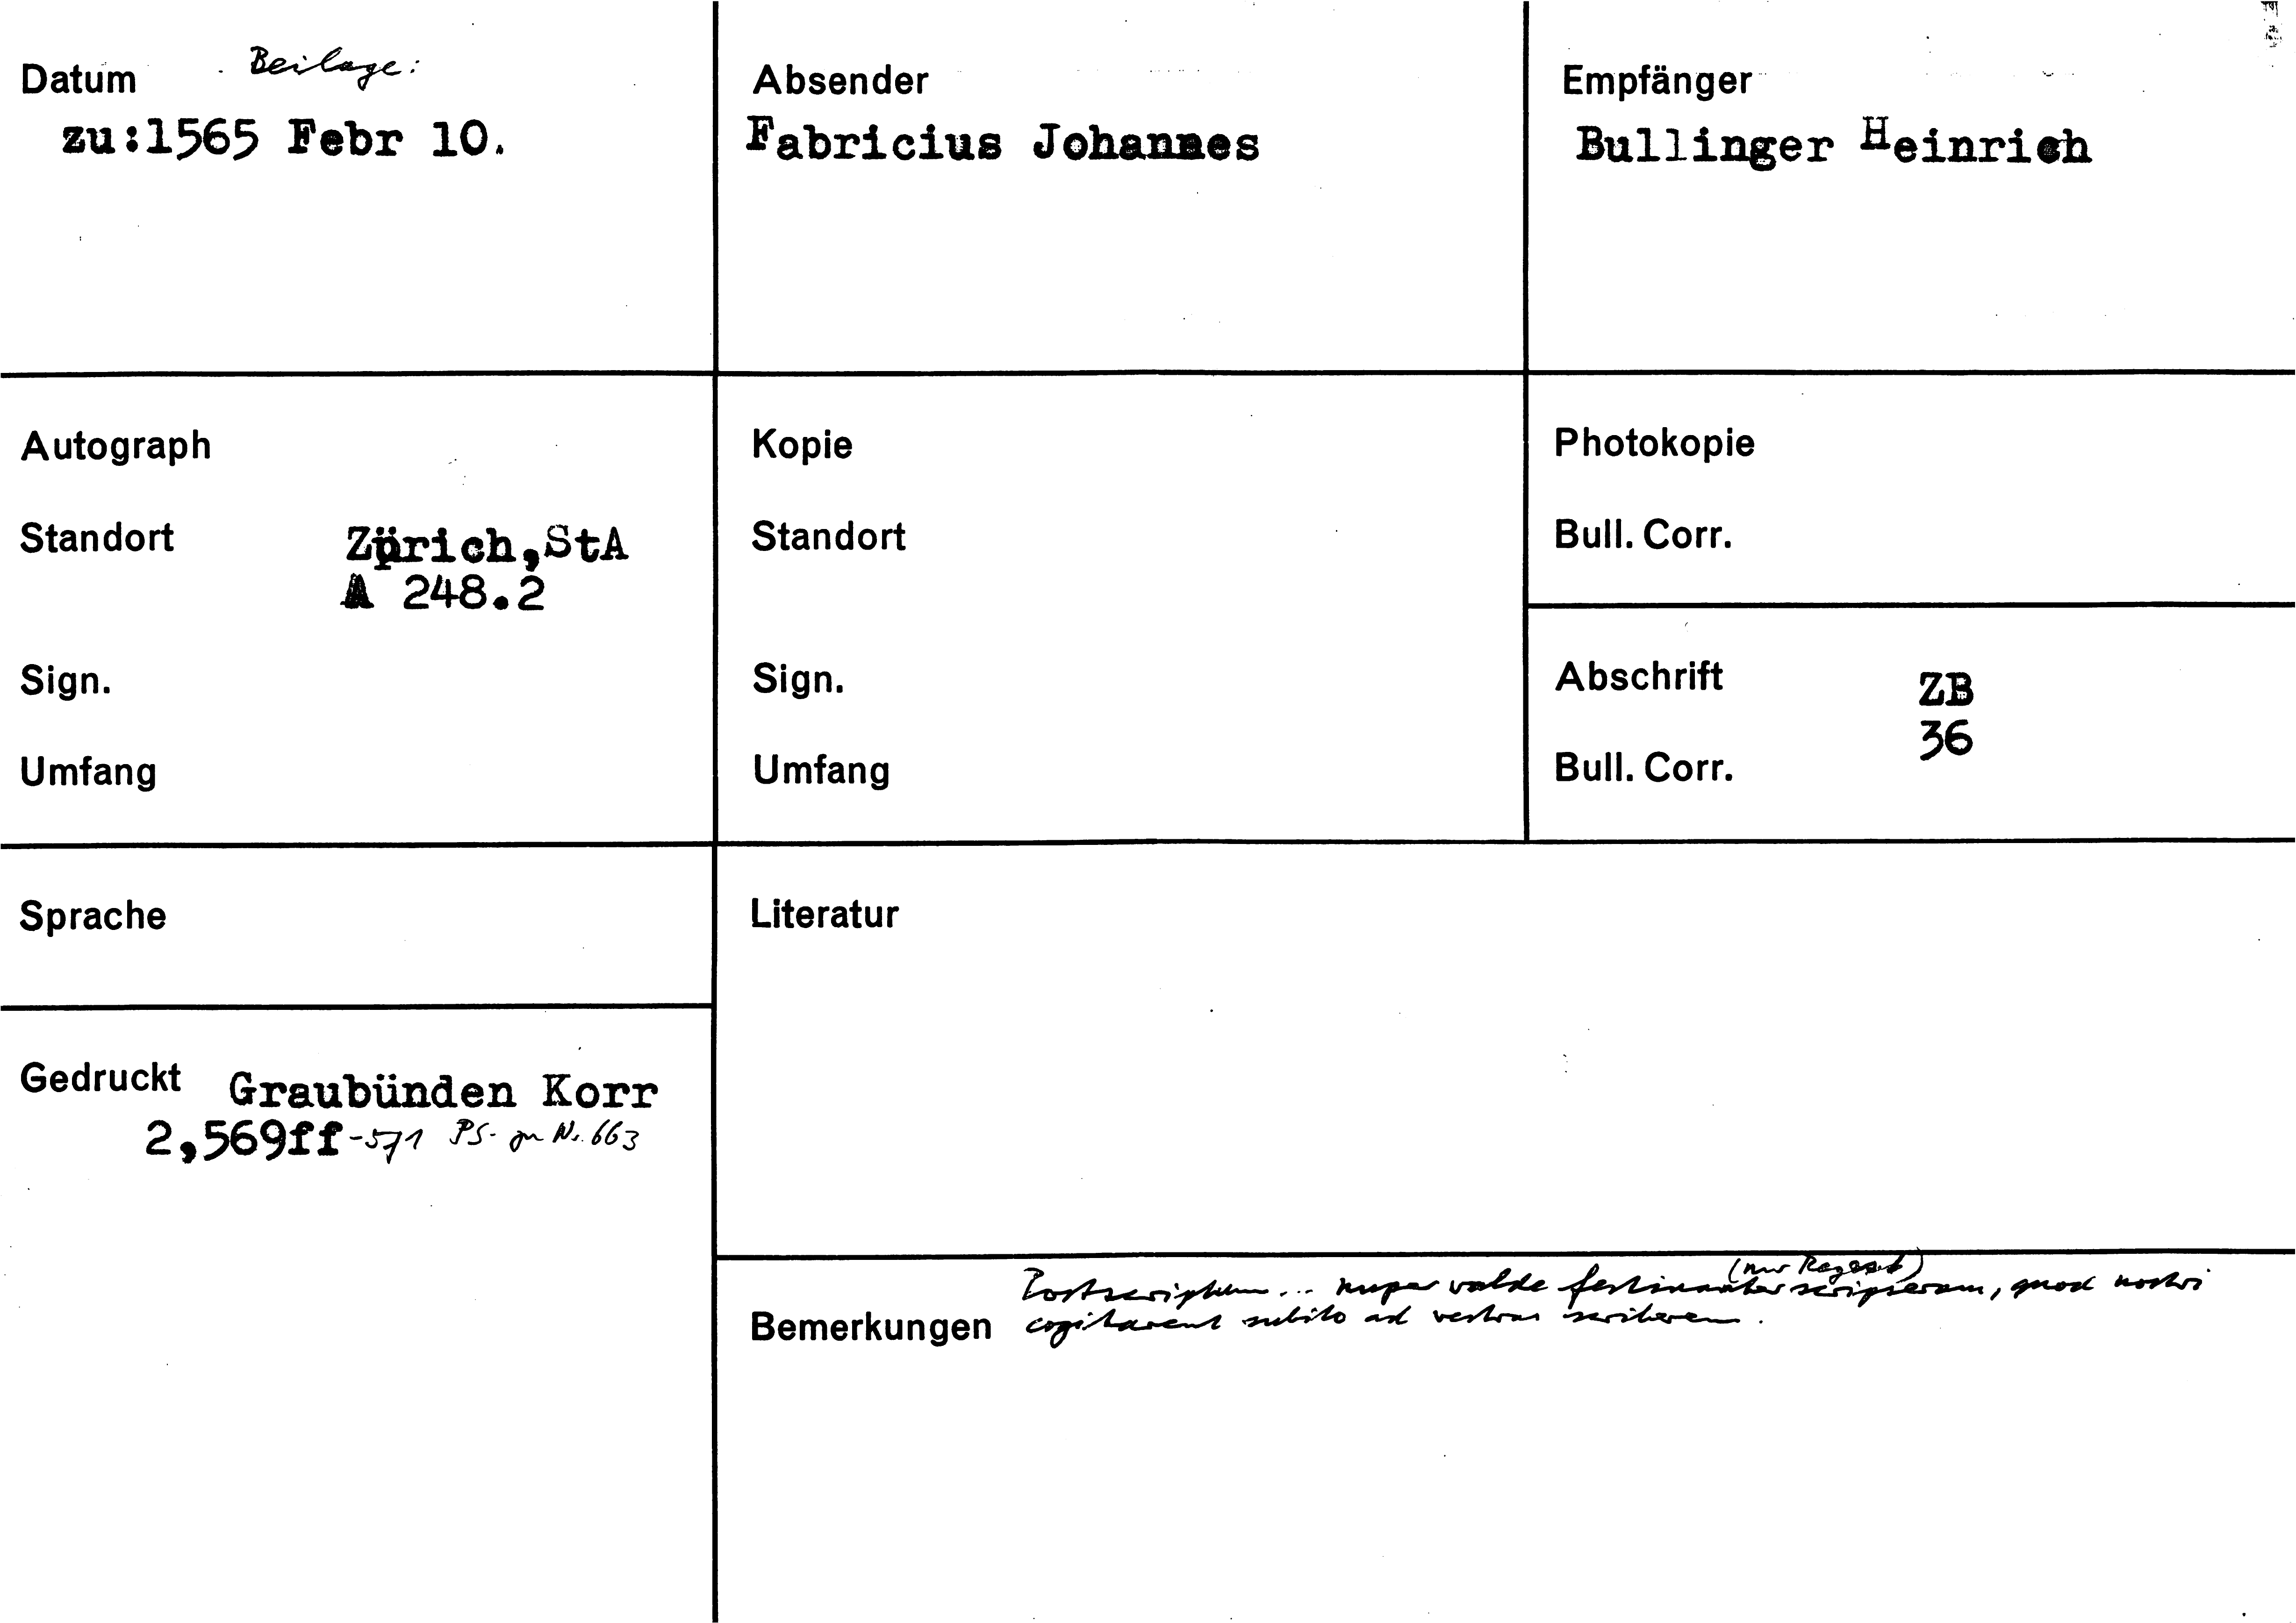 Datum Beilage:
zu:1565 Febr 10.
Absender
Fabricius Johannes
Empfänger
Bullinger Heinrich
Autograph
Standort Zürich,StA
A 248.2
Sign.
Umfang
Kopie
Standort
Sign.
Umfang
Photokopie
Bull. Corr.
Abschrift ZB
36
Bull. Corr.
Sprache
Gedruckt Graubünden Korr
2,569ff-571 PS. zu Nr. 663
Literatur
(nur Regest)
Postscriptum... nuper valde festinanter scripseram, quod nostri
Bemerkungen cogitarent subito ad vestros scribere.